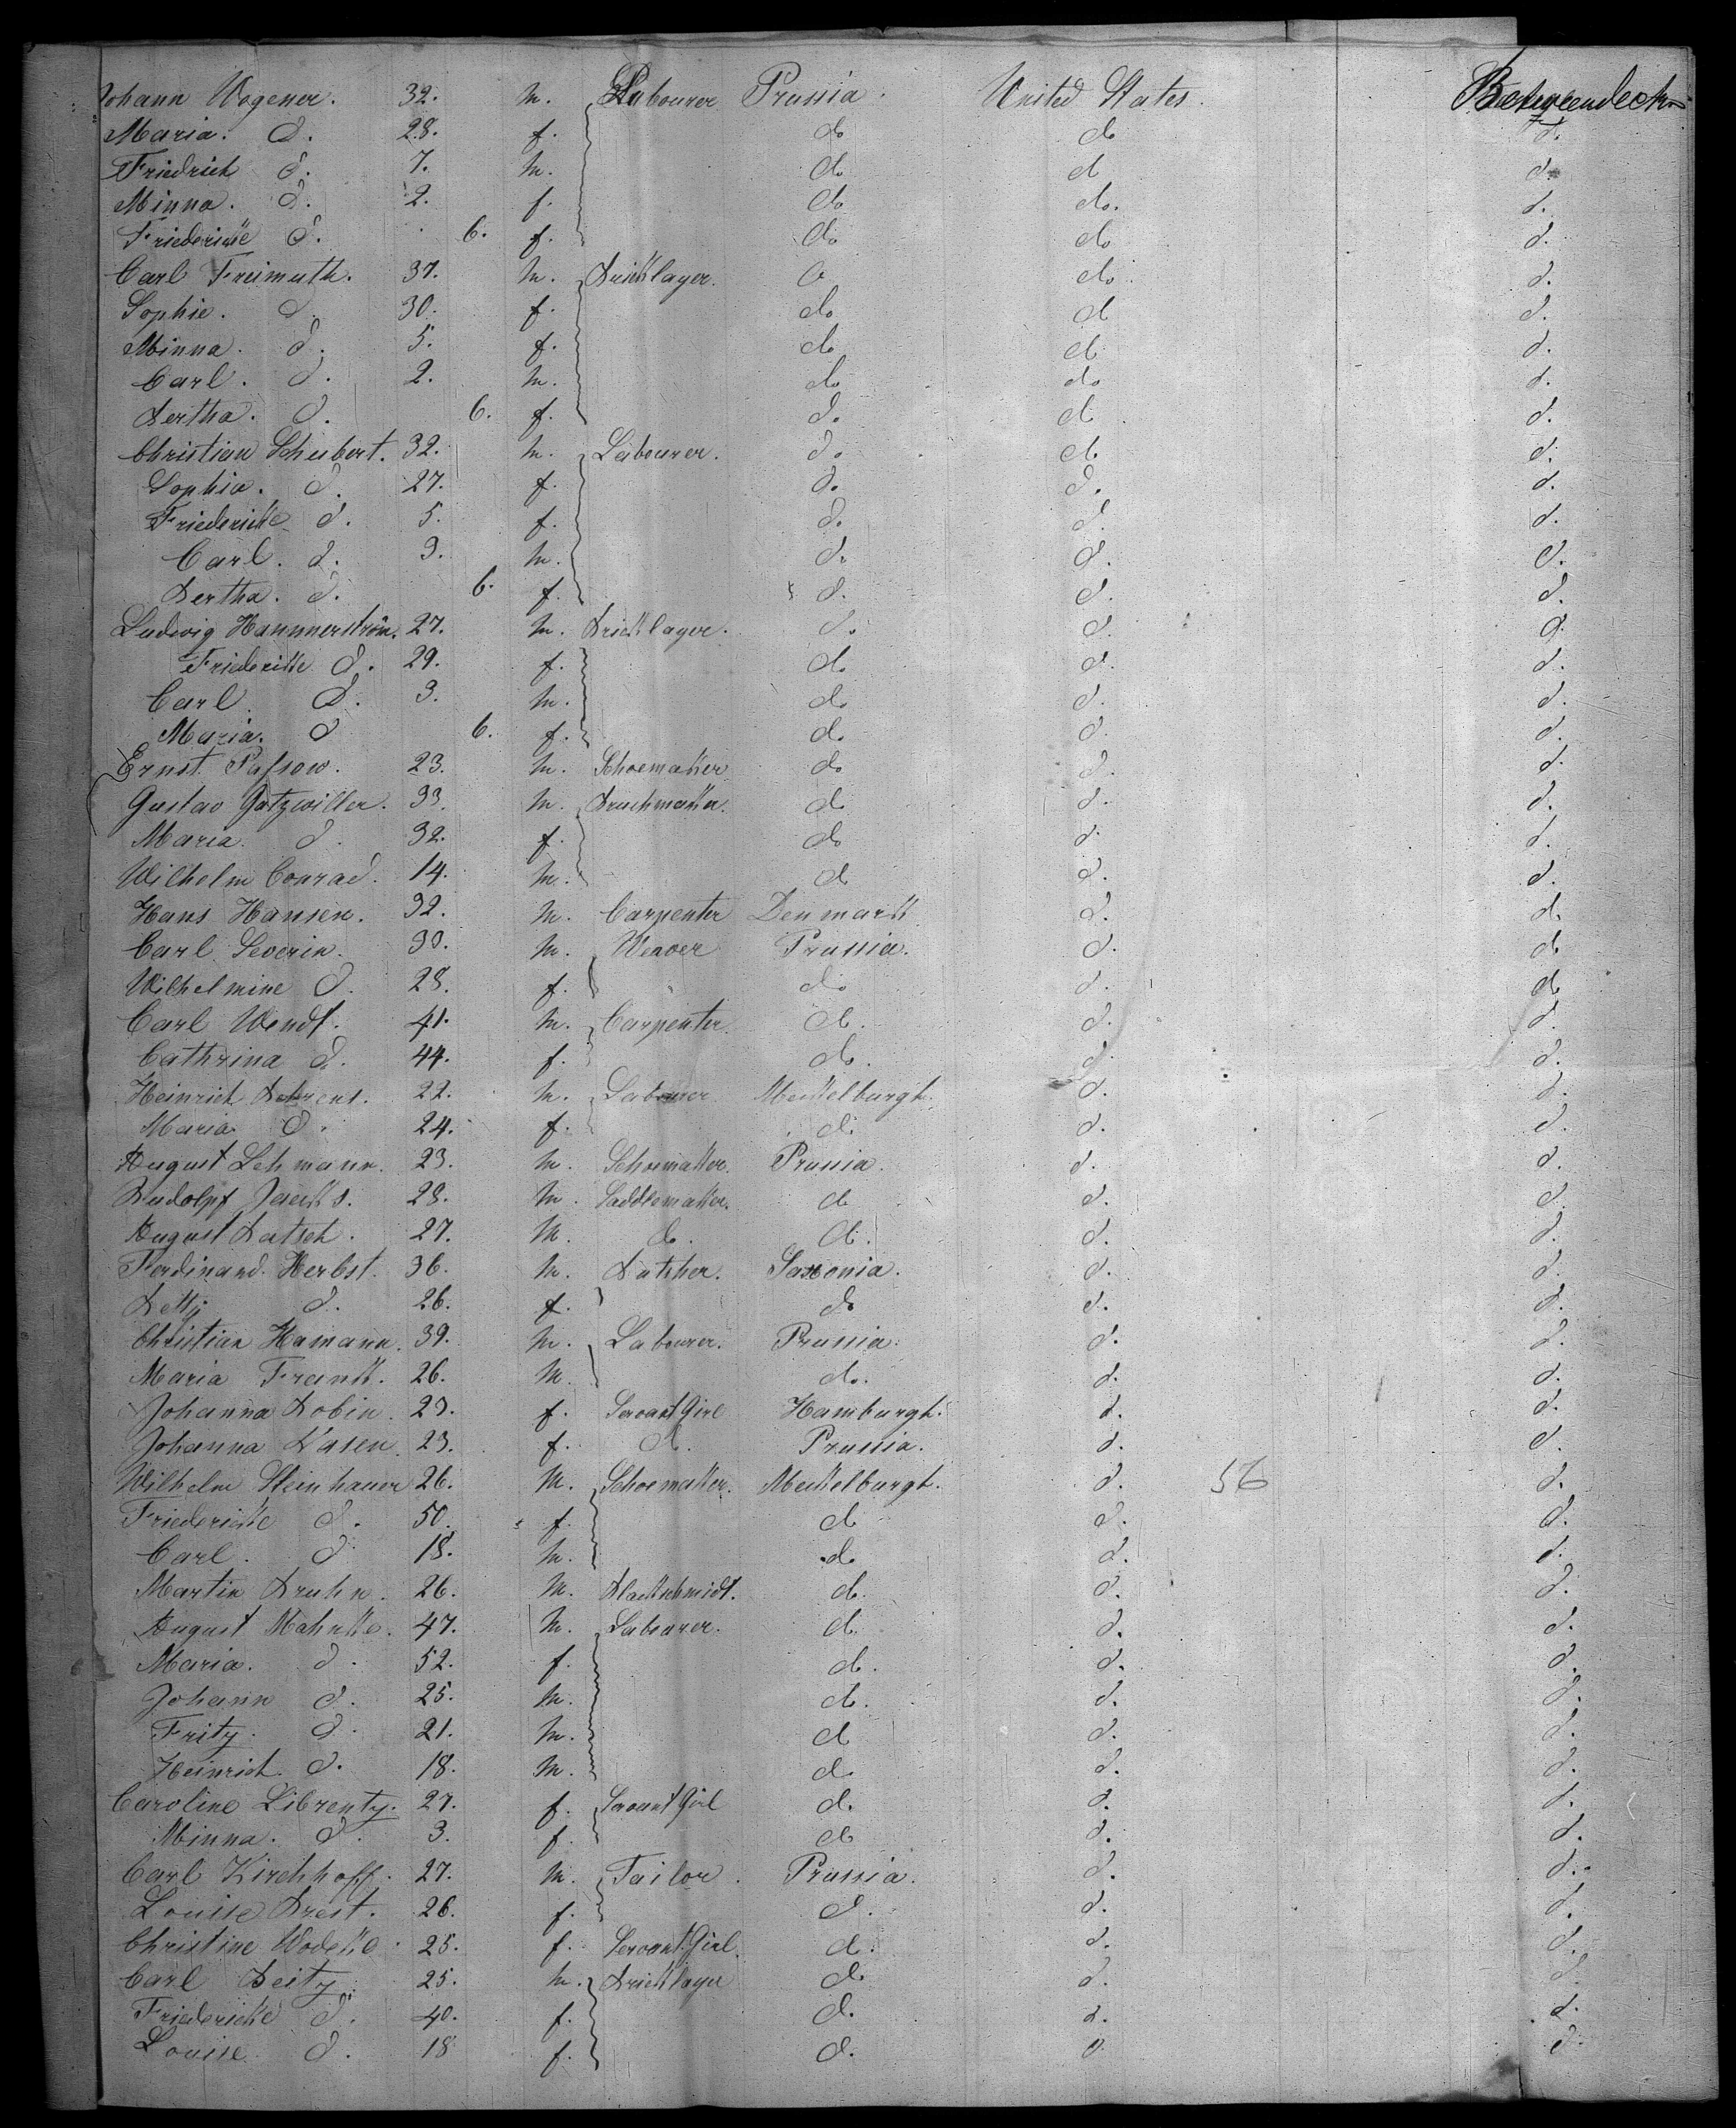 Johann Wagener. 32. m. Labourer Prussia. United States. Betweendecks
Maria. d. 28. f. do do d.
Friedrich d. 7. m. do d d.
Minna. d. 2. f. do do. d.
Friedericke d. 6. f. do do d.
Carl Freimuth. 37. m. Bricklayer. d do d.
Sophie. d. 30. f. do d d.
Minna. d. 5. f. do d d.
Carl. d. 2. m. do do d.
Bertha. d. 6. f. do d d.
Christian Schubert. 32. m. Labourer. do d. d.
Sophia. d. 27. f. do d. d.
Friedericke d. 5. f. do d. d.
Carl. d. 3. m. do d. d.
Bertha. d. 6. f. d. d. d.
Ludwig Hammerström. 27. m. Bricklayer. do d. d.
Friedericke d. 29. f. do d. d.
Carl d. 3. m. do d. d.
Maria. d 6. f. do d. d.
Ernst Passow. 23. m. Schoemaker do d. d.
Gustav Gatzwiller. 33. m. Bruchmaker. do d. d.
Maria. d. 32. f. do d. d.
Wilhelm Conrad. 14. m. d d. d.
Hans Hansen. 32. m. Carpenter Denmark d. d.
Carl Severin. 30. m. Weaver Prussia. d. d
Wilhelmine d. 28. f. do d. d
Carl Wendt. 41. m. Carpenter. do. d. d.
Cathrina d. 44. f. do. d. d.
Heinrich Behrens. 22. m. Labourer Meckelburgh. d. d.
Maria d. 24. f. d. d. d.
August Lehmann. 23. m. Schoemaker. Prussia. d. d.
Rudolpf Jacks. 28. m. Saddlemaker. d d. d.
August Batsch. 27. m. do. d. d. d.
Ferdinand Herbst. 36. m. Butcher. Saxonia. d. d.
Betty d. 26. f. do d. d.
Christian Hamann. 39. m. Labourer. Prussia. d. d.
Maria Frank. 26. m. do. d. d.
Johanna Bobin. 23. f. Servant Girl Hamburgh. d. d.
Johanna Kasen. 23. f. d. Prussia. d. d.
Wilhelm Steinhauer 26. m. Schoemaker. Meckelburgh. d. 56 d.
Friedericke d. 50. f. d d. d.
Carl. d 18. m. d. d. d.
Martin Bruhn. 26. m. Blackschmidt. d. d. d.
August Mahnke. 47. m. Labourer. d. d. d.
Maria. d. 52. f. d. d. d.
Johann d. 25. m. d. d. d.
Fritz. d. 21. m. d d. d.
Heinrich. d. 18. m. d. d. d.
Caroline Librentz. 27. f. Servant Girl d. d. d.
Minna. d. 3. f. d d. d.
Carl Kirchhoff. 27. m. Tailor. Prussia. d. d.
Louise Brest. 26. f. d. d. d.
Christine Wodeke. 25. f. Servant Girl. d. d. d.
Carl Beitz. 25. m. Bricklayer d. d. d.
Friedericke d. 40. f. d. d. d.
Louise. d. 18 f. d. d d.